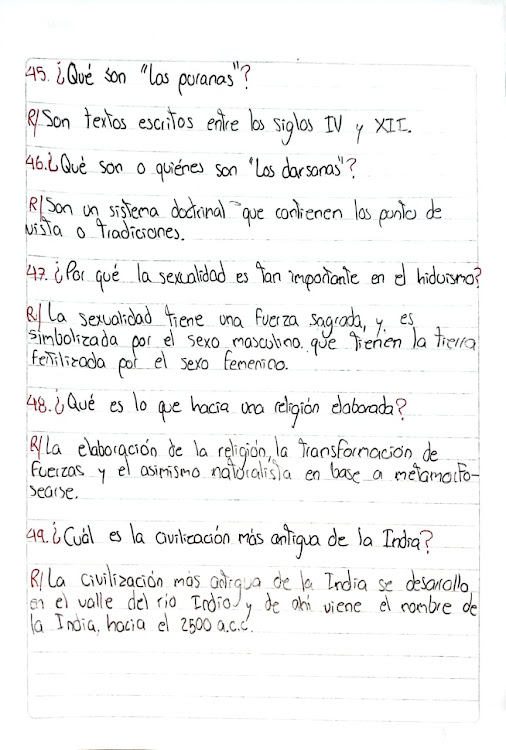 45. ¿Qué son "Los puranas"?
R/ Son textos escritos entre los siglos IV y XII.
46. ¿Qué son o quiénes son "Los darsanas"?
R/ Son un sistema doctrinal que contienen los punto de
vista o tradiciones.
47. ¿Por qué la sexualidad es tan importante en el hiduismo?
R/ La sexualidad tiene una fuerza sagrada, y es
simbolizada por el sexo masculino que tienen la tierra
fertilizada por el sexo femenino.
48. ¿Qué es lo que hacia una religión elaborada?
R/ La elaboración de la religión, la transformación de
fuerzas y el asimismo naturalista en base a metamorfo-
searse.
49. ¿Cuál es la civilización más antigua de la India?
R/ La civilización más antigua de la India se desarrollo
en el valle del río Indio y de ahí viene el nombre de
la India, hacia el 2500 a.c.c.